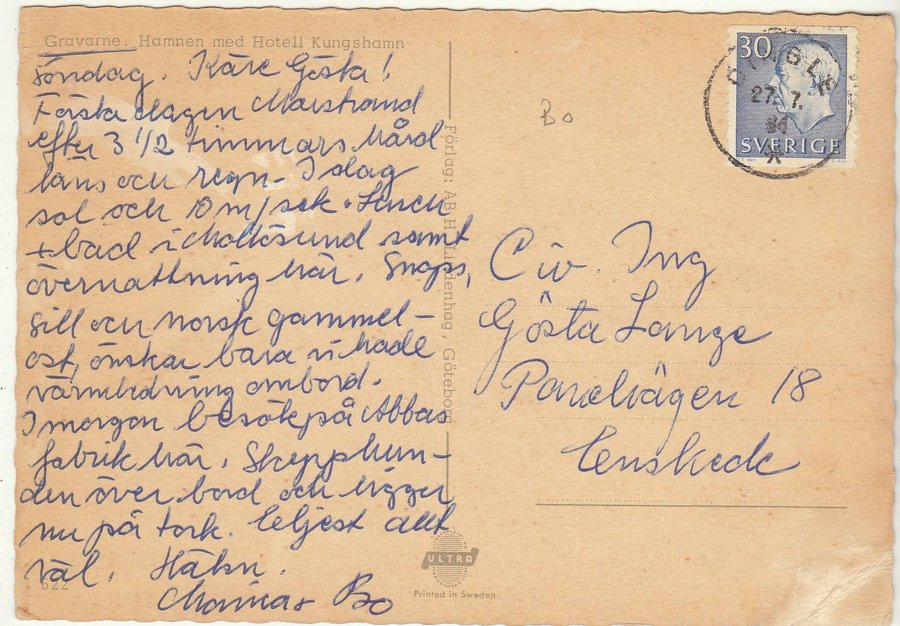 Gravarne. Hamnen med Hotell Kungshamn
Söndag. Käre Gösta!
Första dagen Marstrand
efter 3 1/2 timmars hård
läns och regn. I dag
sol och 10 m/sek. Lunch
+ bad i Mollösund samt
övernattning här. Snaps,
sill och norsk gammel-
ost, önskar bara vi hade
värmledning ombord.
I morgon besök på Abbas
fabrik här. Skepphun-
den över bord och ligger
nu på tork. Eljest allt
väl. Hälsn.
Bo
622
Förlag: AB H. Lindenhag, Göteborg
ULTRA
Printed in Sweden
Bo
30
SVERIGE
DINGLE
27. 7.
Civ. Ing
Gösta Lange
Panelvägen 18
Enskede